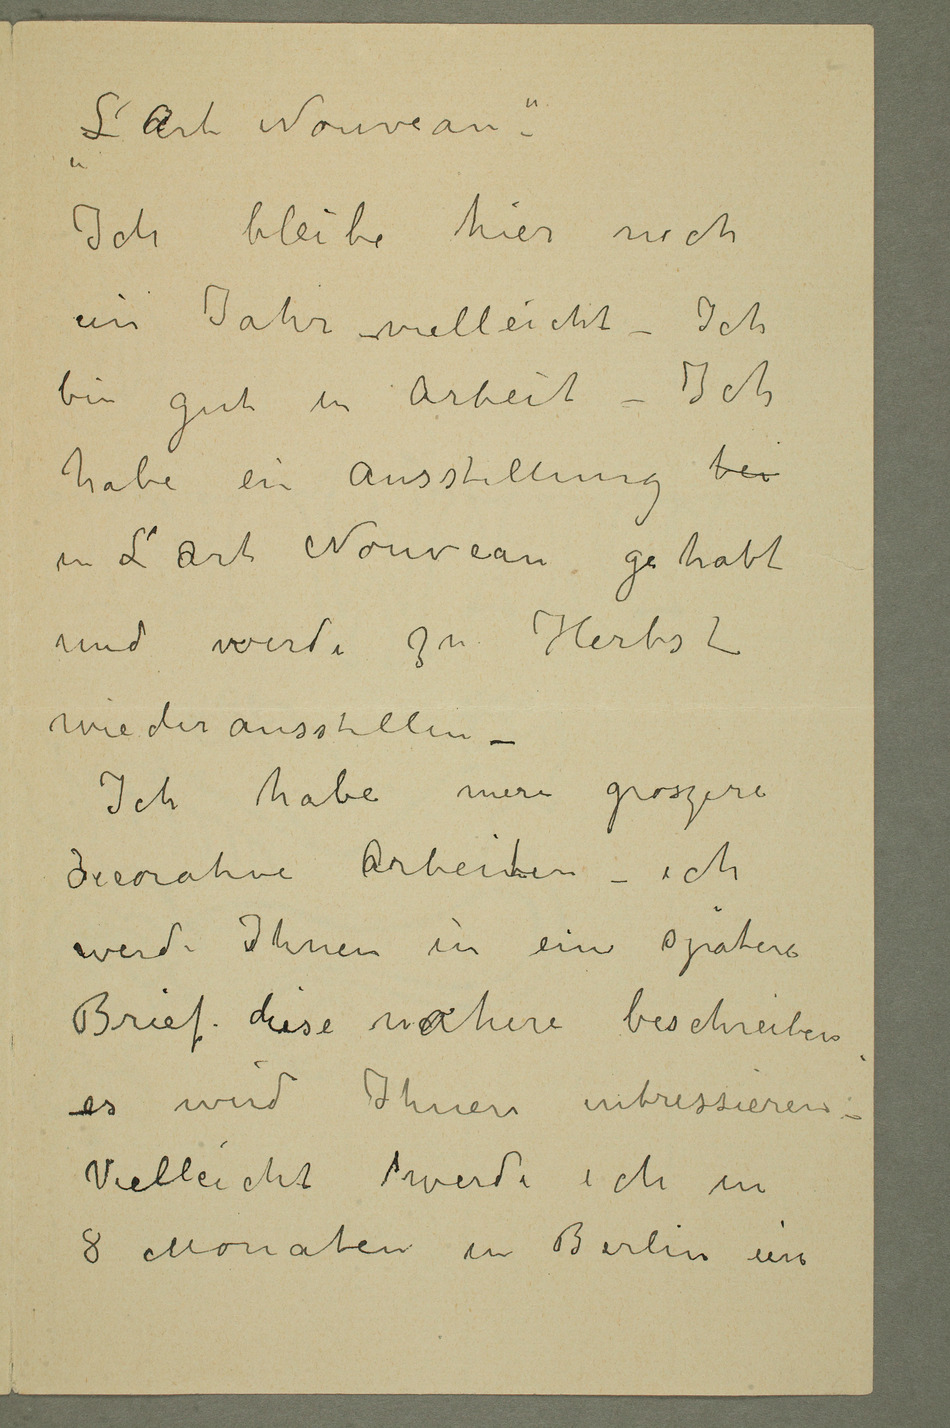 „L'Art Nouveau".
Ich bleibe hier noch
ein Jahr – vielleicht – Ich
bin gut in Arbeit – Ich
habe ein Ausstellung bei
in L'Art Nouveau gehabt
und werde zu Herbst
wieder ausstellen –
Ich habe mere groszere
decorative Arbeiten – ich
werde Ihnen in eine spätere
Brief diese nähere beschreiben,
es wird Ihnen intressieren –
Vielleicht werde ich in
8 Monaten in Berlin ein